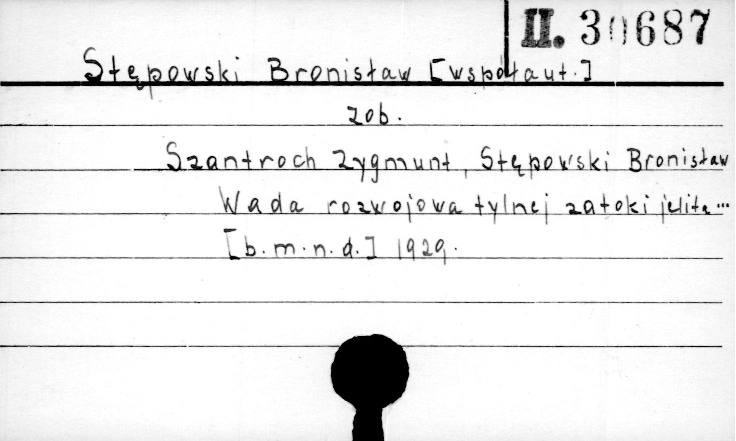 II. 30687
Stępowski Bronisław [współaut.]
zob.
Szantroch Zygmunt, Stępowski Bronisław
Wada rozwojowa tylnej zatoki jelita...
[b.m.n.d.] 1929.